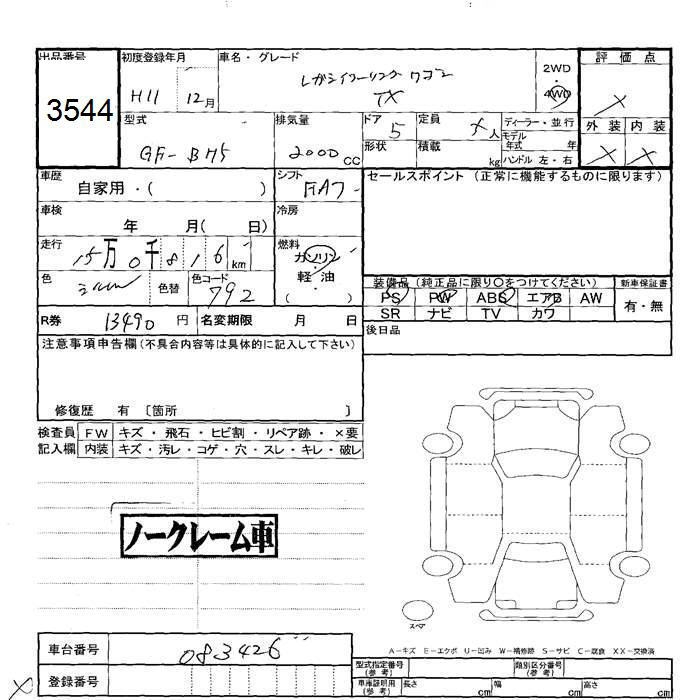 出品番号 初度登録年月 車名・グレード 評価点
3544
H11 12月 レガシイツーリングワゴン
TX
2WD
・
4WD
外装 内装
型式 排気量 ドア 定員 ディーラー・並行
GF- 2000 CC 5 人 モデル年式 年
形状 積載 kg ハンドル 左・右
車歴 自家用・( ) シフト FA7 セールスポイント (正常に機能するものに限ります)
車検 年 月( 日) 冷房
走行 15万0千816km 燃料 ガソリン
軽・油
( )
色 シルバー 色替 色コード 792
装備品 (純正品に限り〇をつけてください) 新車保証書
PS PW ABS エアB AW 有・無
SR ナビ TV カワ
R券 13490 円 名変期限 月 日
後日品
注意事項申告欄 (不具合内容等は具体的に記入して下さい)
修復歴 有 〔箇所 〕
検査員 FW キズ・飛石・ヒビ割・リペア跡・×要
記入欄 内装 キズ・汚レ・コゲ・穴・スレ・キレ・破レ
ノークレーム車
スペア
A-キズ E-エクボ U-凹み W-補修跡 S-サビ C-腐食 XX-交換済
車台番号 083426
登録番号
型式指定番号 (参考) 類別区分番号 (参考)
車庫証明用 (参考) 長さ cm 幅 cm 高さ cm